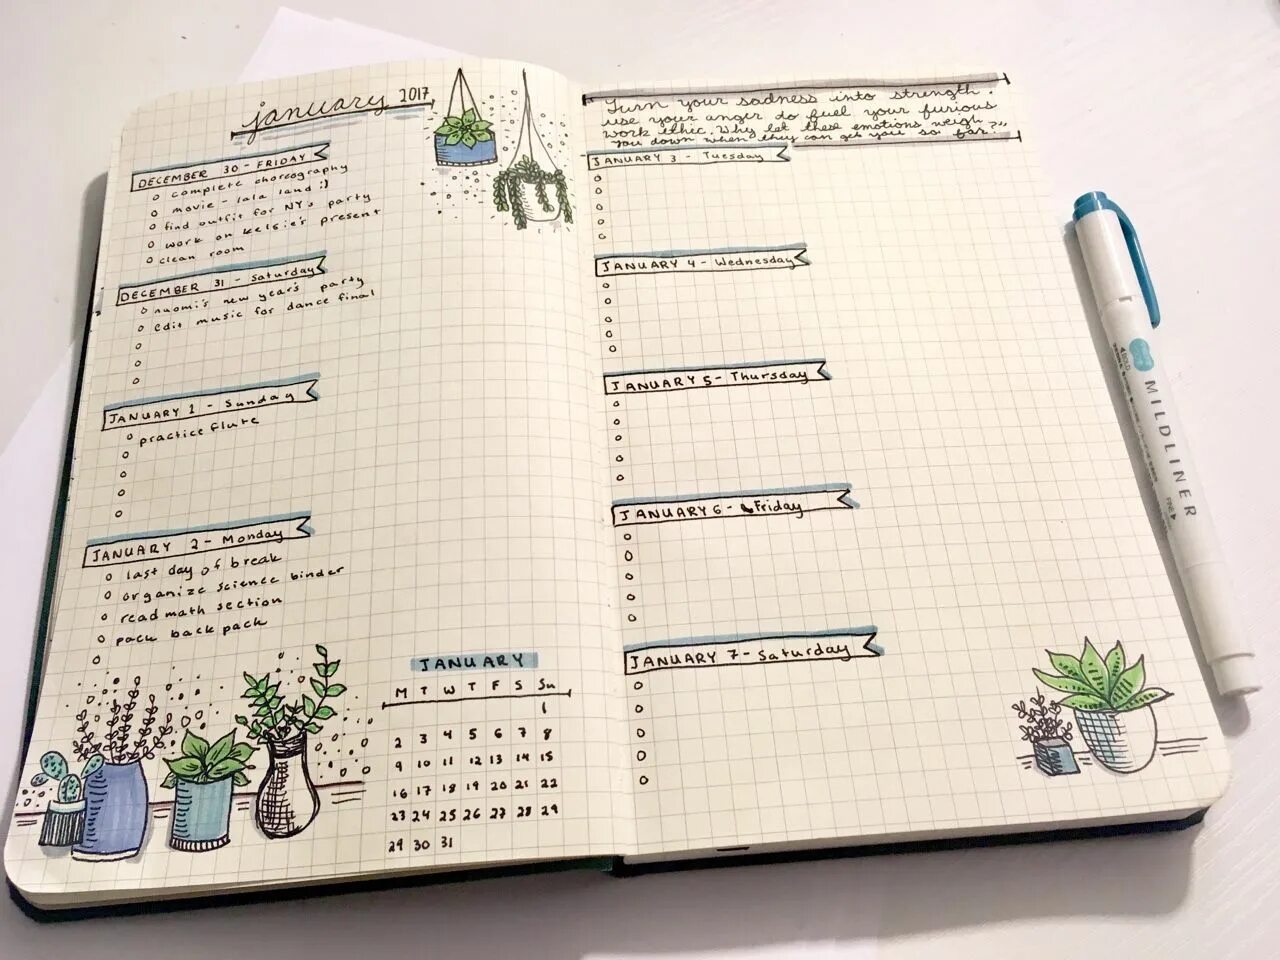 january 2017
DECEMBER 30 - FRIDAY
complete choreography
movie - lala land :)
find outfit for NYs party
work on kelsie's present
clean room
DECEMBER 31 - Saturday
naomi's new year's party
edit music for dance final
JANUARY 1 - Sunday
practice flute
JANUARY 2 - Monday
last day of break
organize science binder
read math section
pack backpack
JANUARY
M T W T F S Su
1
2 3 4 5 6 7 8
9 10 11 12 13 14 15
16 17 18 19 20 21 22
23 24 25 26 27 28 29
29 30 31
Turn your sadness into strength.
use your anger do fuel your furious
work ethic. Why let these emotions weigh
you down when they can get you so far?"
JANUARY 3 - Tuesday
JANUARY 4 - Wednesday
JANUARY 5 - Thursday
JANUARY 6 - Friday
JANUARY 7 - Saturday
BOLD
MILDLINER
FINE